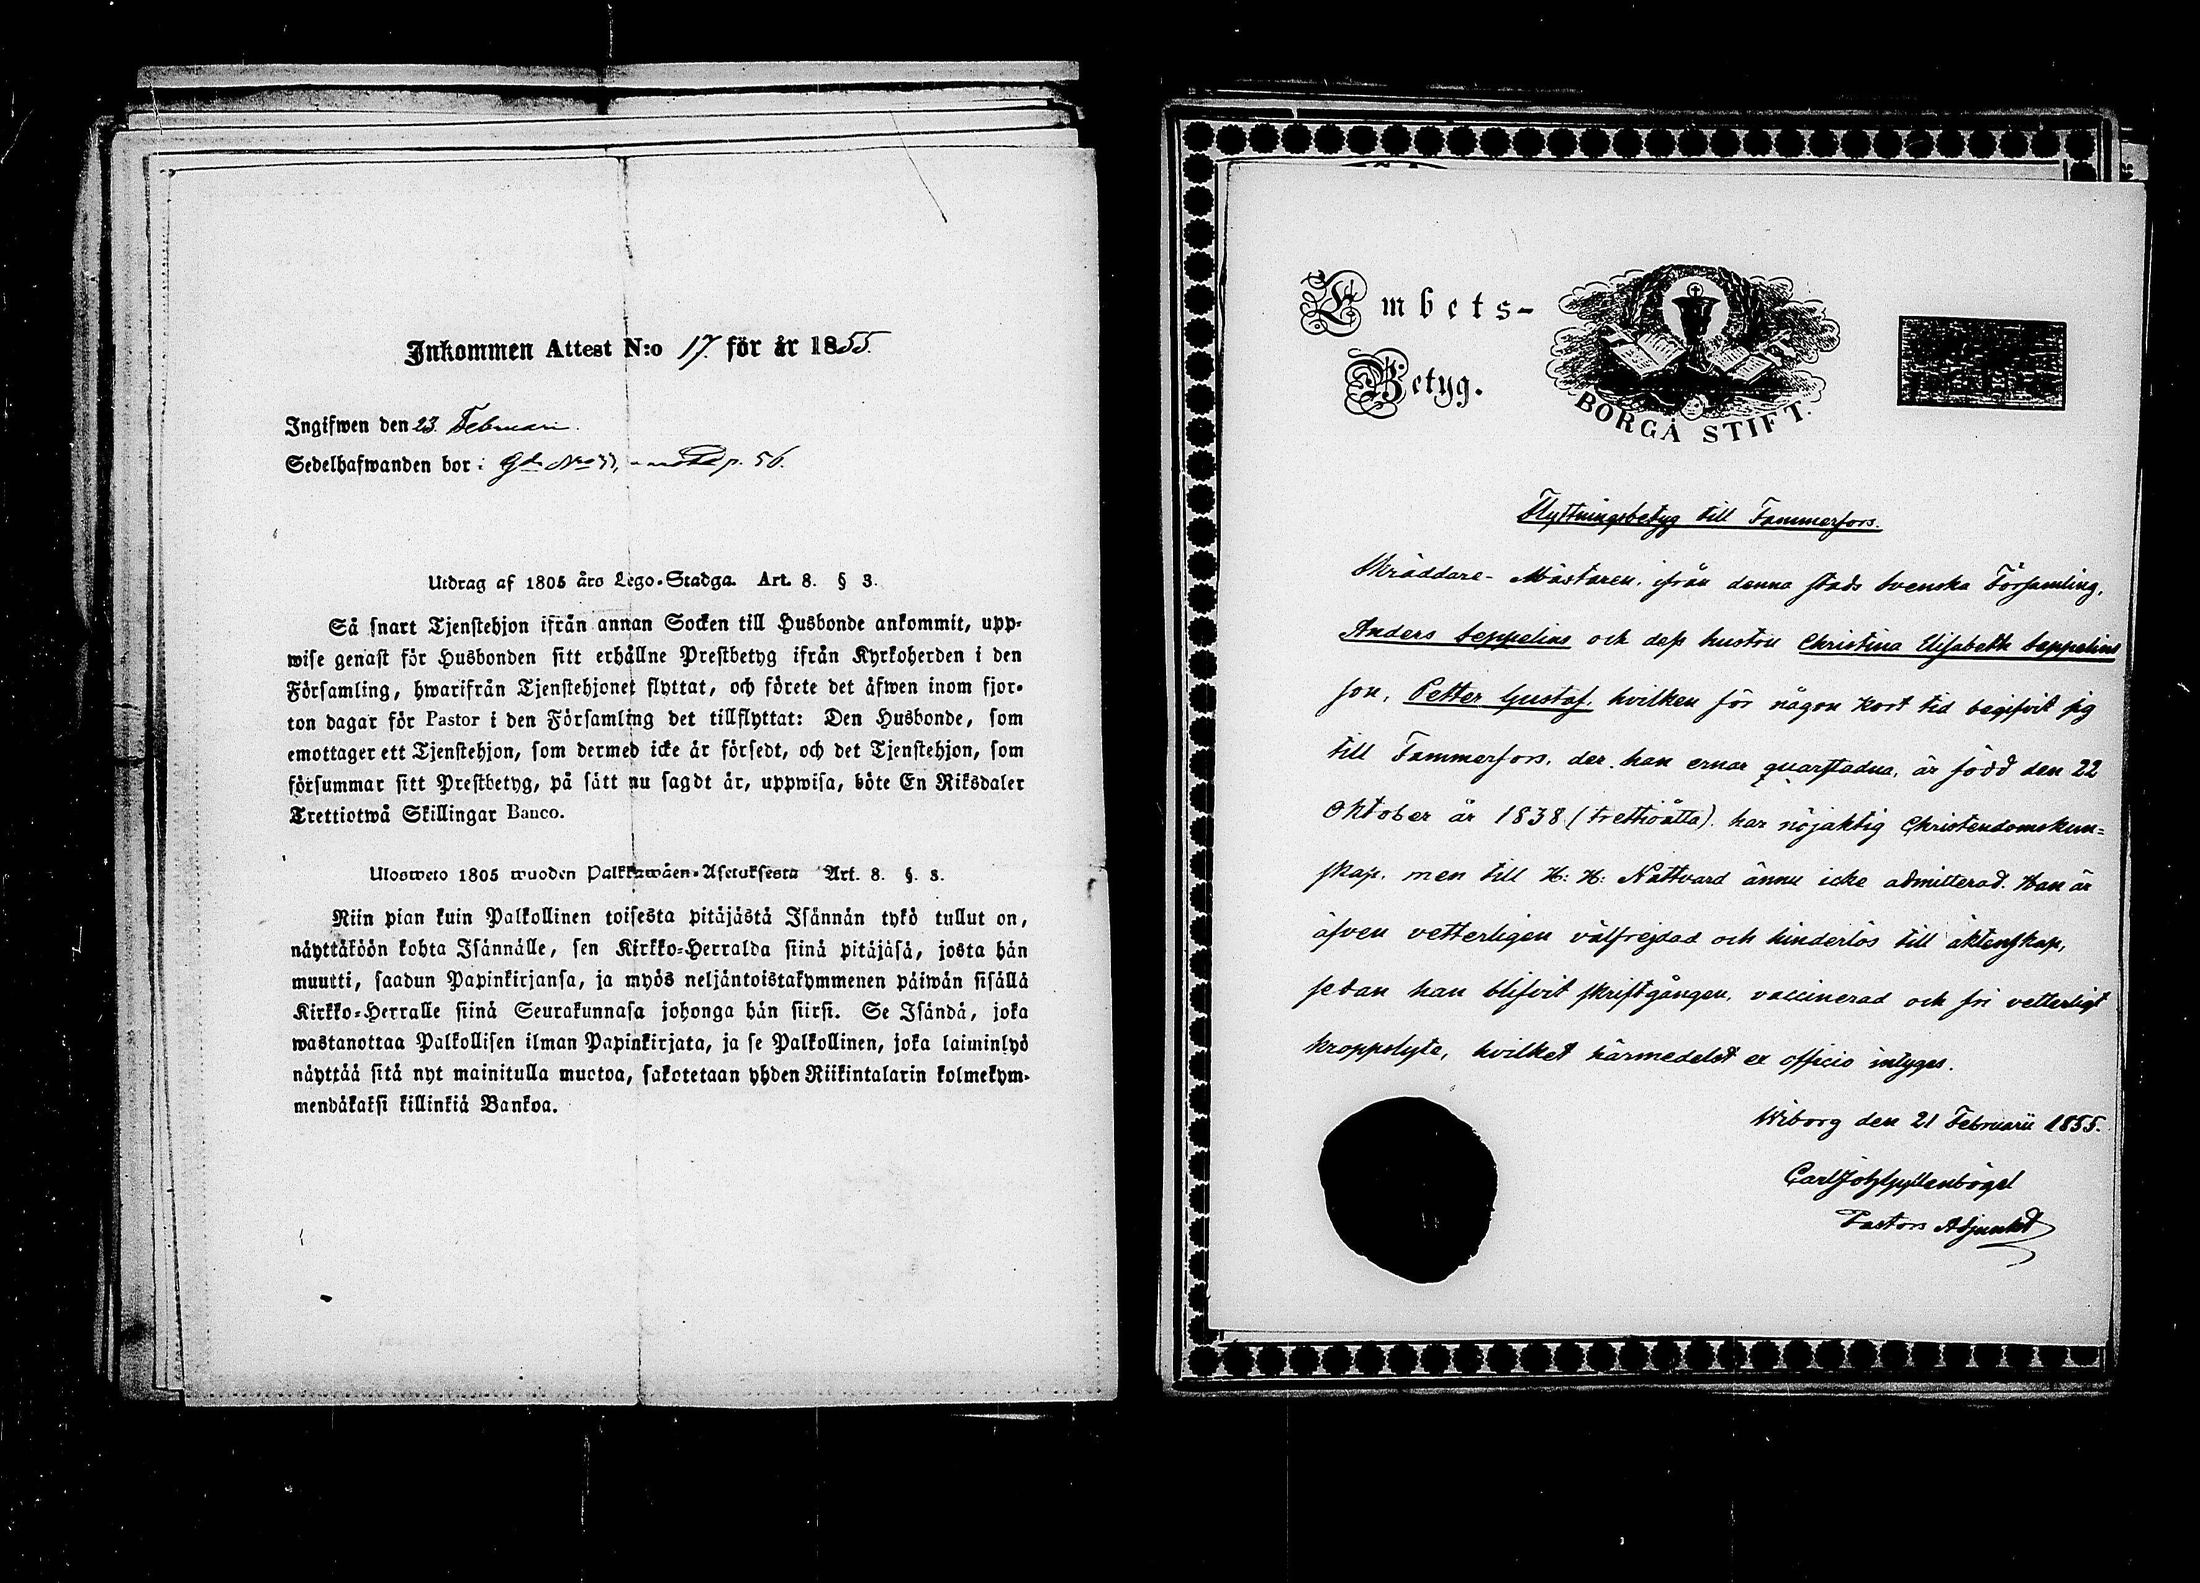 Inkommen Attest N:o 17. för år 1855.
Ingifwen den 23. Februari.
Sedelhafwanden bor i Gd. No p. 56.
Utdrag af 1805 års Lego-Stadga. Art. 8. § 3.
Så snart Tjenstehjon ifrån annan Socken till Husbonde ankommit, upp-
wise genast för Husbonden sitt erhållne Prestbetyg ifrån Kyrkoherden i den
Församling, hwarifrån Tjenstehjonet flyttat, och förete det äfwen inom fjor-
ton dagar för Pastor i den Församling det tillflyttat: Den Husbonde, som
emottager ett Tjenstehjon, som dermed icke är försedt, och det Tjenstehjon, som
försummar sitt Prestbetyg, på sätt nu sagdt är, uppwisa, böte En Riksdaler
Trettiotwå Skillingar Banco.
Ulosweto 1805 wuoden Palkkawäen-Asetuksesta Art. 8. §. 3.
Niin pian kuin Palkollinen toisesta pitäjästä Isännän tykö tullut on,
näyttäköön kohta Isännälle, sen Kirkko-Herralda siinä pitäjäsä, josta hän
muutti, saadun Papinkirjansa, ja myös neljäntoistakymmenen päiwän sisällä
Kirkko-Herralle siinä Seurakunnasa johonga hän siirsi. Se Isändä, joka
wastanottaa Palkollisen ilman Papinkirjata, ja se Palkollinen, joka laiminlyö
näyttää sitä nyt mainitulla muotoa, sakotetaan yhden Riikintalarin kolmekym-
mendäkaksi killinkiä Bankoa.
Embets-
Betyg.
BORGÅ STIFT.
Flyttningsbetyg till Tammerfors.
Skräddare-Mästaren, ifrån denna stads Svenska Församling,
Anders Seppelius och dess hustru Christina Elisabeth Seppelius
son, Petter Gustaf, hvilken för någon kort tid begifvit sig
till Tammerfors, der han ernar quarstadna, är född den 22
Oktober år 1838 (trettioåtta). har nöjaktig Christendomskun=
skap, men till H: H: Nattvard ännu icke admitterad. Han är
äfven vetterligen välfrejdad och hinderlös till äktenskap,
sedan han blifvit skriftgången, vaccinerad och fri vetterligt
kroppslyte, hvilket härmedelst ex officio intygas.
Wiborg den 21 Februarii 1855.
Carl Joh Gyllenbögel
Pastors Adjunkt